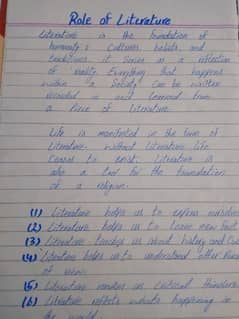 Role of Literature
Literature is the foundation of
humanity's cultures, beliefs and
traditions. It serves as a reflection
of reality. Everything that happens
within a society can be written
recorded in and learned from
a piece of literature.
Life is manifested in the form of
literature. Without literature life
ceases to exist. Literature is
also a tool for the foundation
of a religion.
(1) Literature helps us to explore ourselves
(2) Literature helps us to learn new
(3) Literature teaches us about history and
(4) Literature helps us to understand other
of views.
(5) Literature makes us critical thinkers
(6) Literature reflects what's happening in
the world.